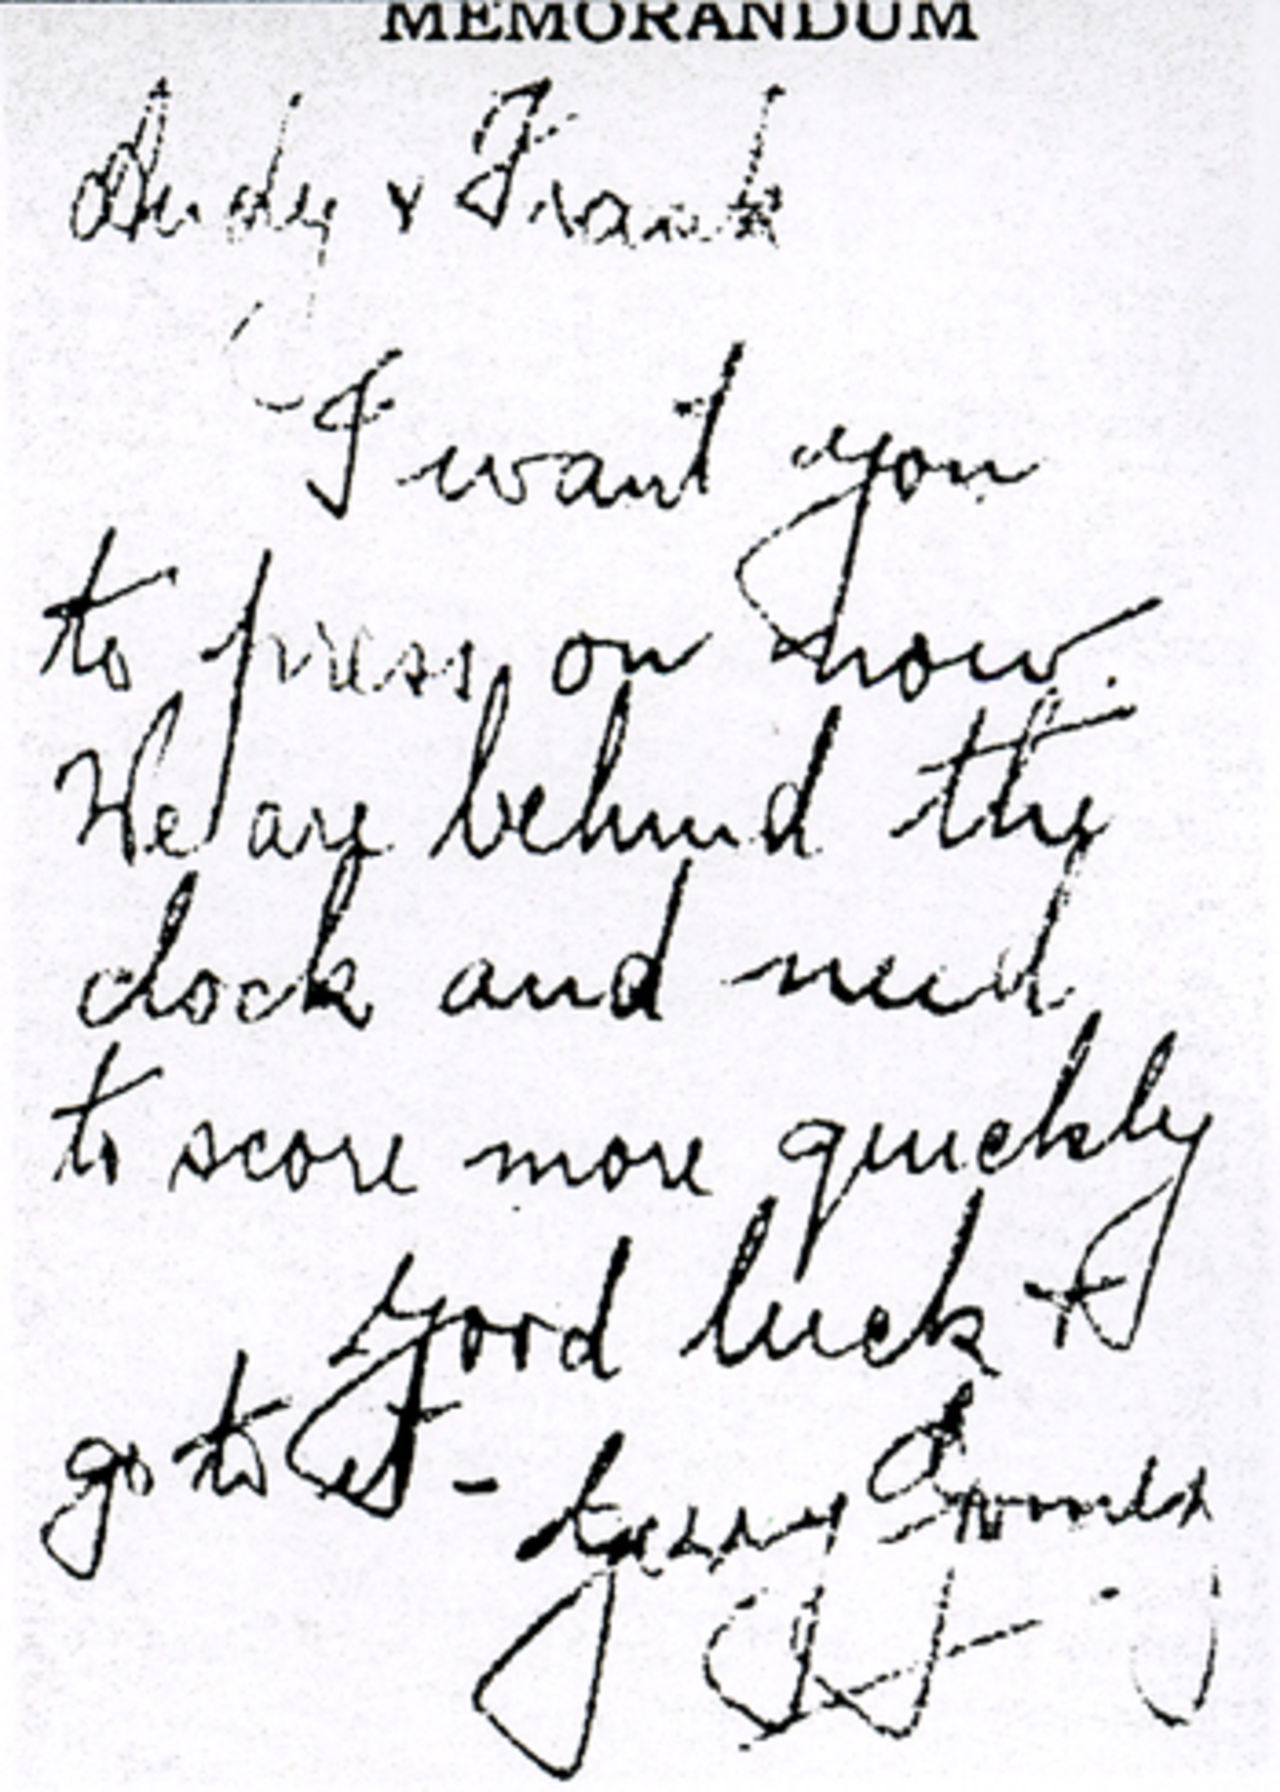 MEMORANDUM
Andy & Frank
I want you
to press on now.
We are behind the
clock and need
to score more quickly
Good luck &
go to it -